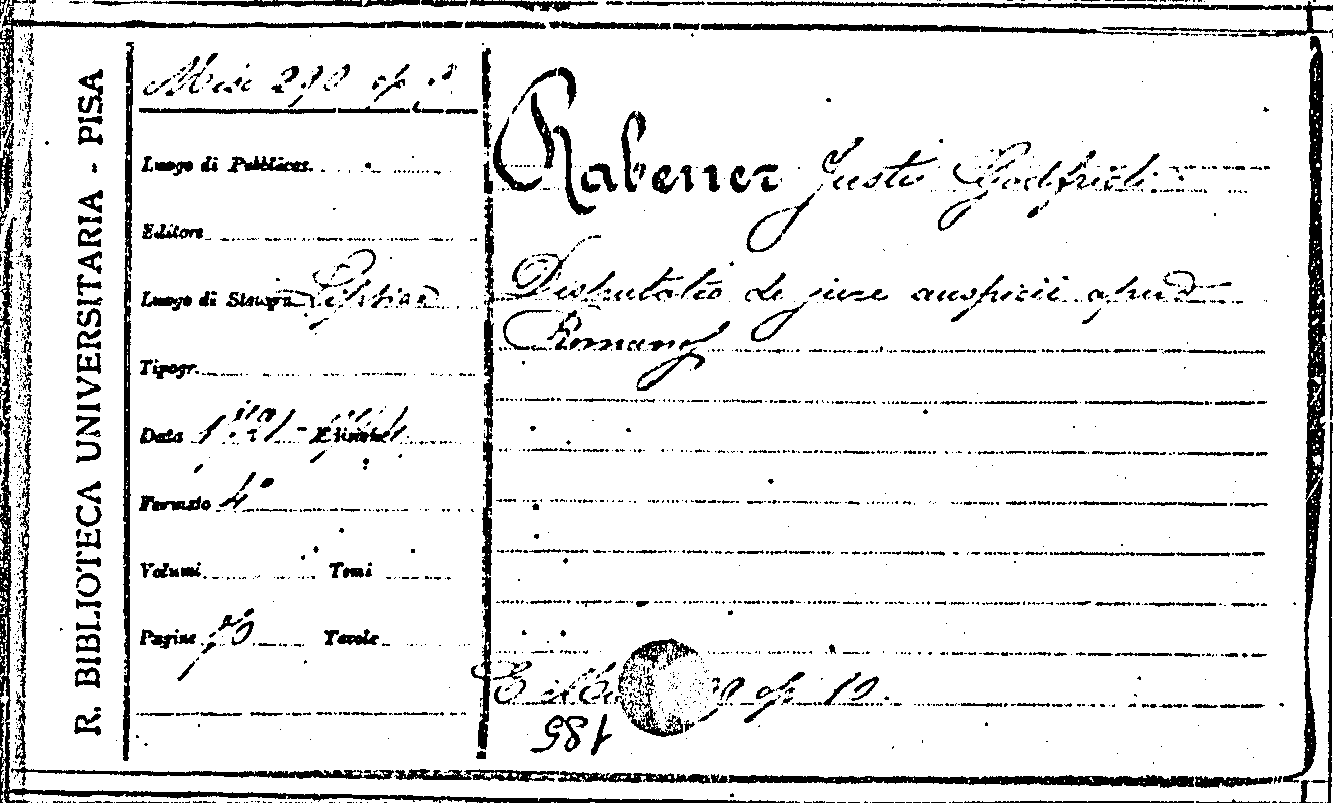 R. BIBLIOTECA UNIVERSITARIA - PISA
Misc 290 op
Luogo di Pubblicaz.
Editore
Luogo di Stampa Lipsiae
Tipogr.
Data
Formato 4°
Volumi Tomi
Pagine Tavole
Rabener Justi Godifredi
Disputatio de jure auspicii apud
Romanos
E op 10.
185